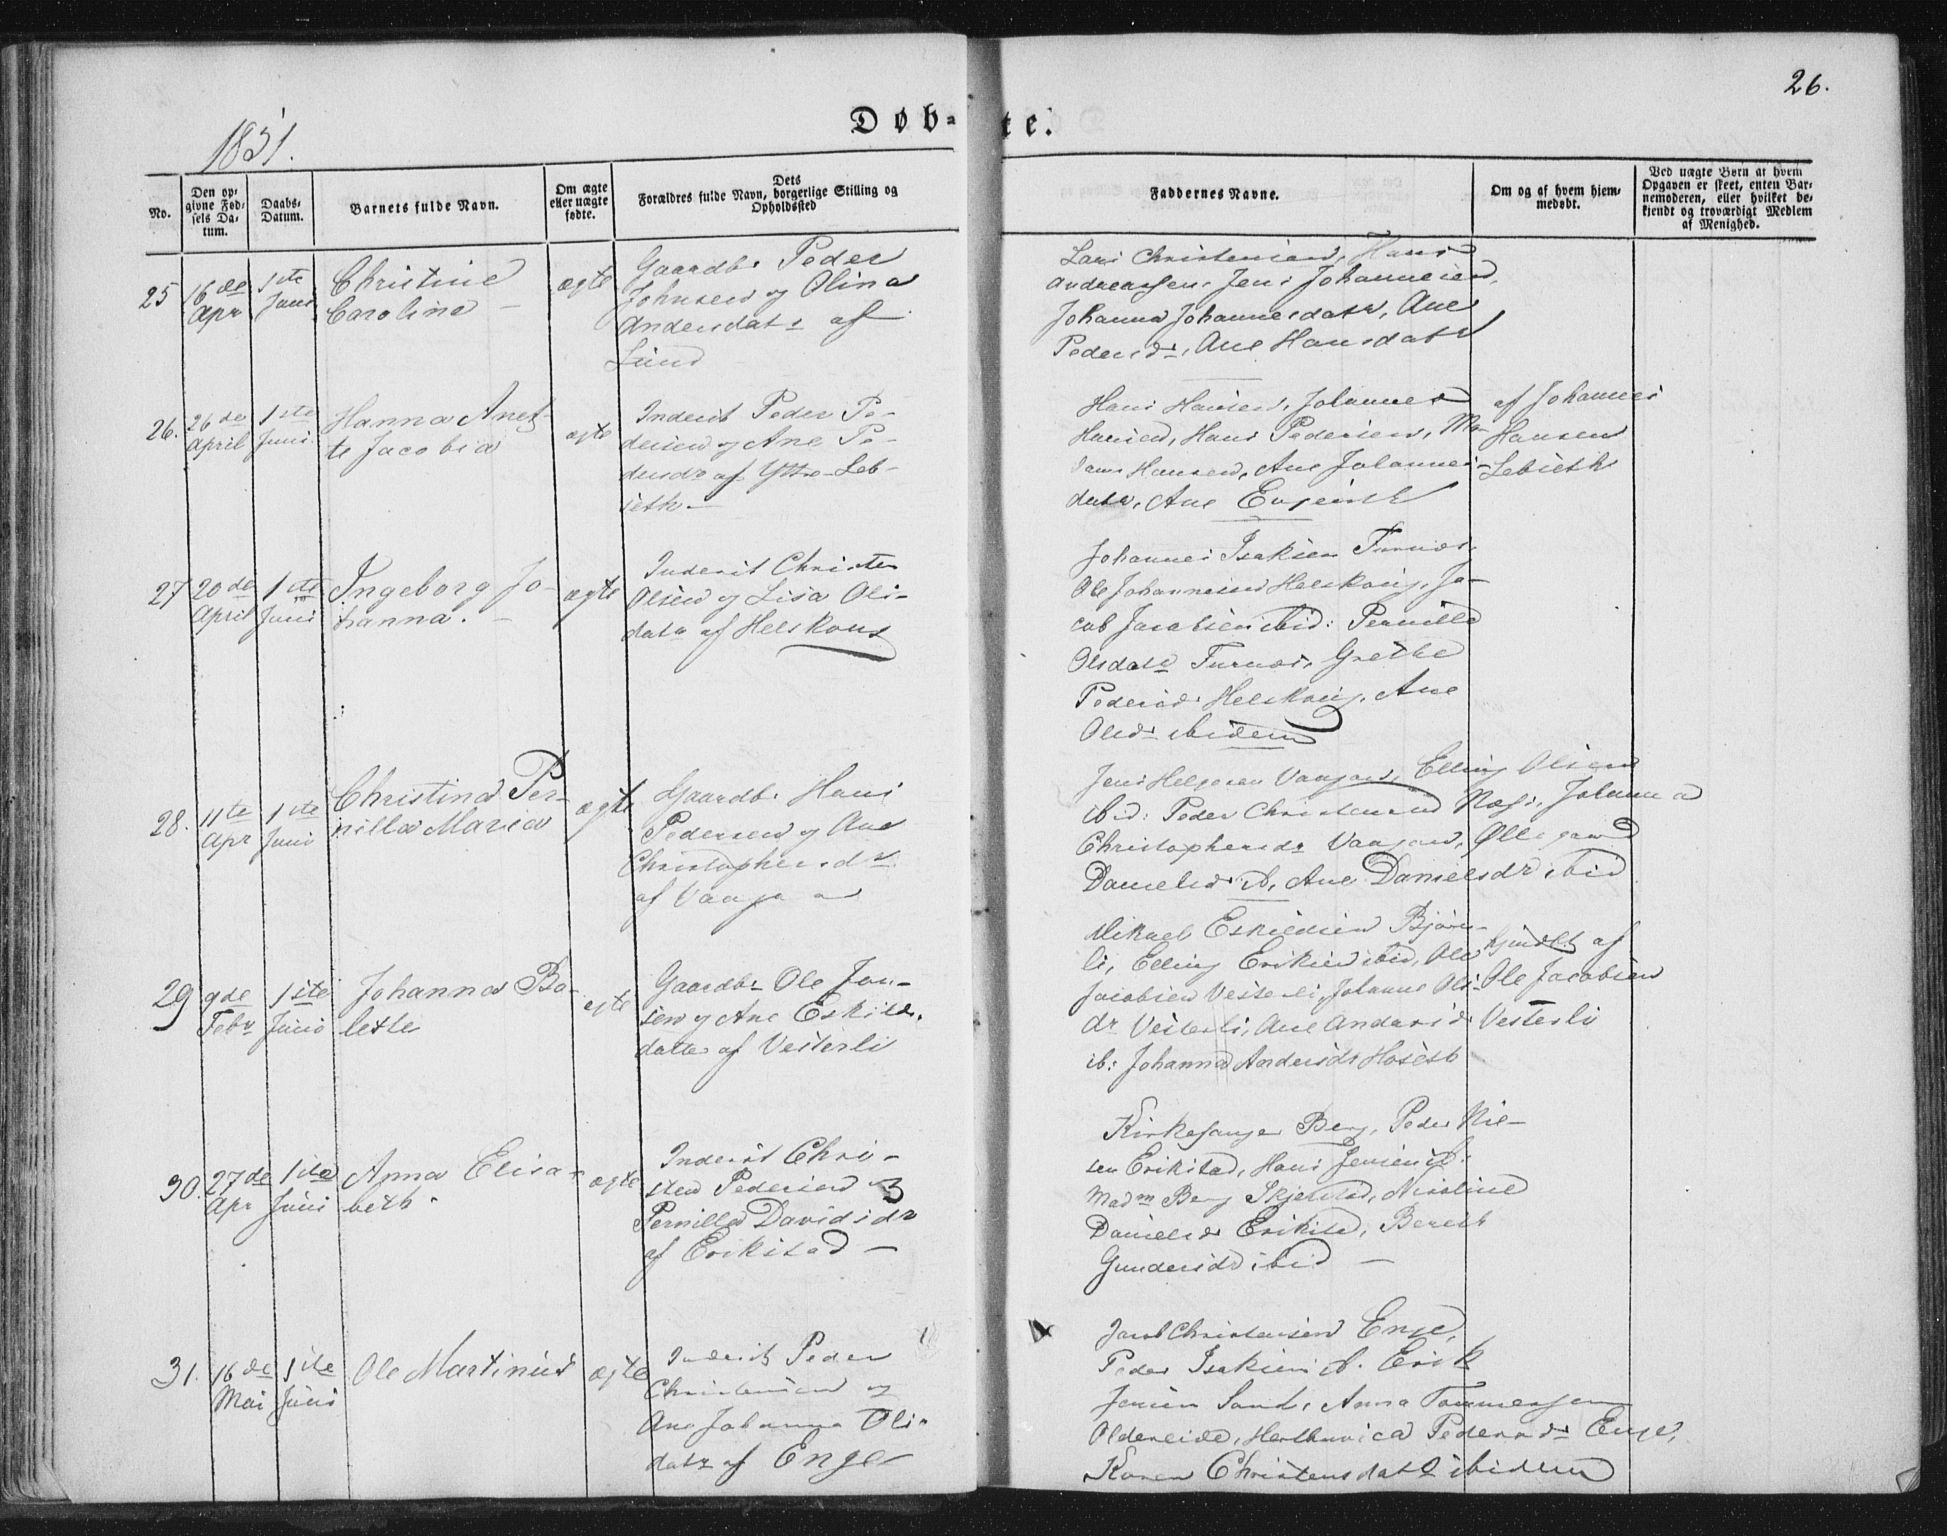 26.
1851.
Døb-te.
No.
Den opgivne Fødsels Datum.
Daabs-Datum.
Barnets fulde Navn.
Om ægte eller uægte fødte.
Dets Forældres fulde Navn, borgerlige Stilling og Opholdssted
Faddernes Navne.
Om og af hvem hjemmedøbt.
Ved uægte Børn at hvem Opgaven er skeet, enten Barnemoderen, eller hvilket bekjendt og troværdigt Medlem af Menighed.
25
16de Apr
1ste Juni
Christine
Carolina
ægte
Gaardbr Peder
Johnsen og Olina
Andersdatr af
Lund
Lars Christensen, Hans
Andreassen, Jens Johannesen,
Johanna Johannesdatr, Ane
Pedersdr, Ane Hansdatr
26.
26de April
1ste Juni
Hanna Anet-
te Jacobia
ægte
Inderst Peder Pe-
dersen og Ane Pe-
dersdr af Yttre-Leb-
seth
Hans Hansen, Johannes
Hansen, Hans Pedersen, Ma-
Hansen, Ane Johannes-
datr, Ane
af Johannes
Hansen
Lebseth
27
20de April
1ste Juni
Ingeborg Jo-
hanna.
ægte
Inderst Christen
Olsen og Lisa Ols-
datr af Helskoug
Johannes Isaksen Furnæs,
Ole Johannessen Helskoug, Ja-
cob Jacobsen ibid: Pernilla
Olsdatr Furnæs, Grethe
Pedersdr Helskoug, Ane
Olsdr ibidem
28.
11te Apr
1ste Juni
Christina Per-
nilla Maria
ægte
Gaardbr Hans
Pedersen og Ane
Christophersdr
af Vaagan
Jens Helgesen Vaagan, Elling Olsen
ibid: Peder Christensen Næss, Johanna
Christophersdr Vaagan, Ollegaard
Danielsdr ib, Ane Danielsdr ibid
29
9de Febr
1ste Juni
Johanna Bo-
lette
ægte
Gaardbr Ole Jon-
sen og Ane Eskils-
datter af Vesterli
Mikael Eskildsen Bjørn-
li, Elling Eriksen ibid, Ole
Jacobsen Vesterli, Johanne Ols-
dr Vesterli, Ane Andersdr
ib: Johanna Andersdr
hjmdbt af
Ole Jacobsen
Vesterli
30.
27de Apr
1ste Juni
Anna Elisa-
beth.
ægte
Inderst Chri-
sten Pedersen og
Pernilla Davidsdr
af Erikstad
Kirkesanger Berg, Peder Niel-
sen Erikstad, Hans Jensen ib:
Madm Berg Skjelstad, Nicoline
Danielsdr Erikstad, Bereth
Gundersdr ibid
31.
16de Mai
1ste Juni
Ole Martinus
ægte
Inderst Peder
Christensen og
Ane Johanna Ols-
datr af Enge
Jacob Christensen Enge,
Peder Isaksen ib. Erik
Jensen Sand, Anna Tommesen
Oldereide, Pedersdr Enge,
Karen Christensdatr ibidem